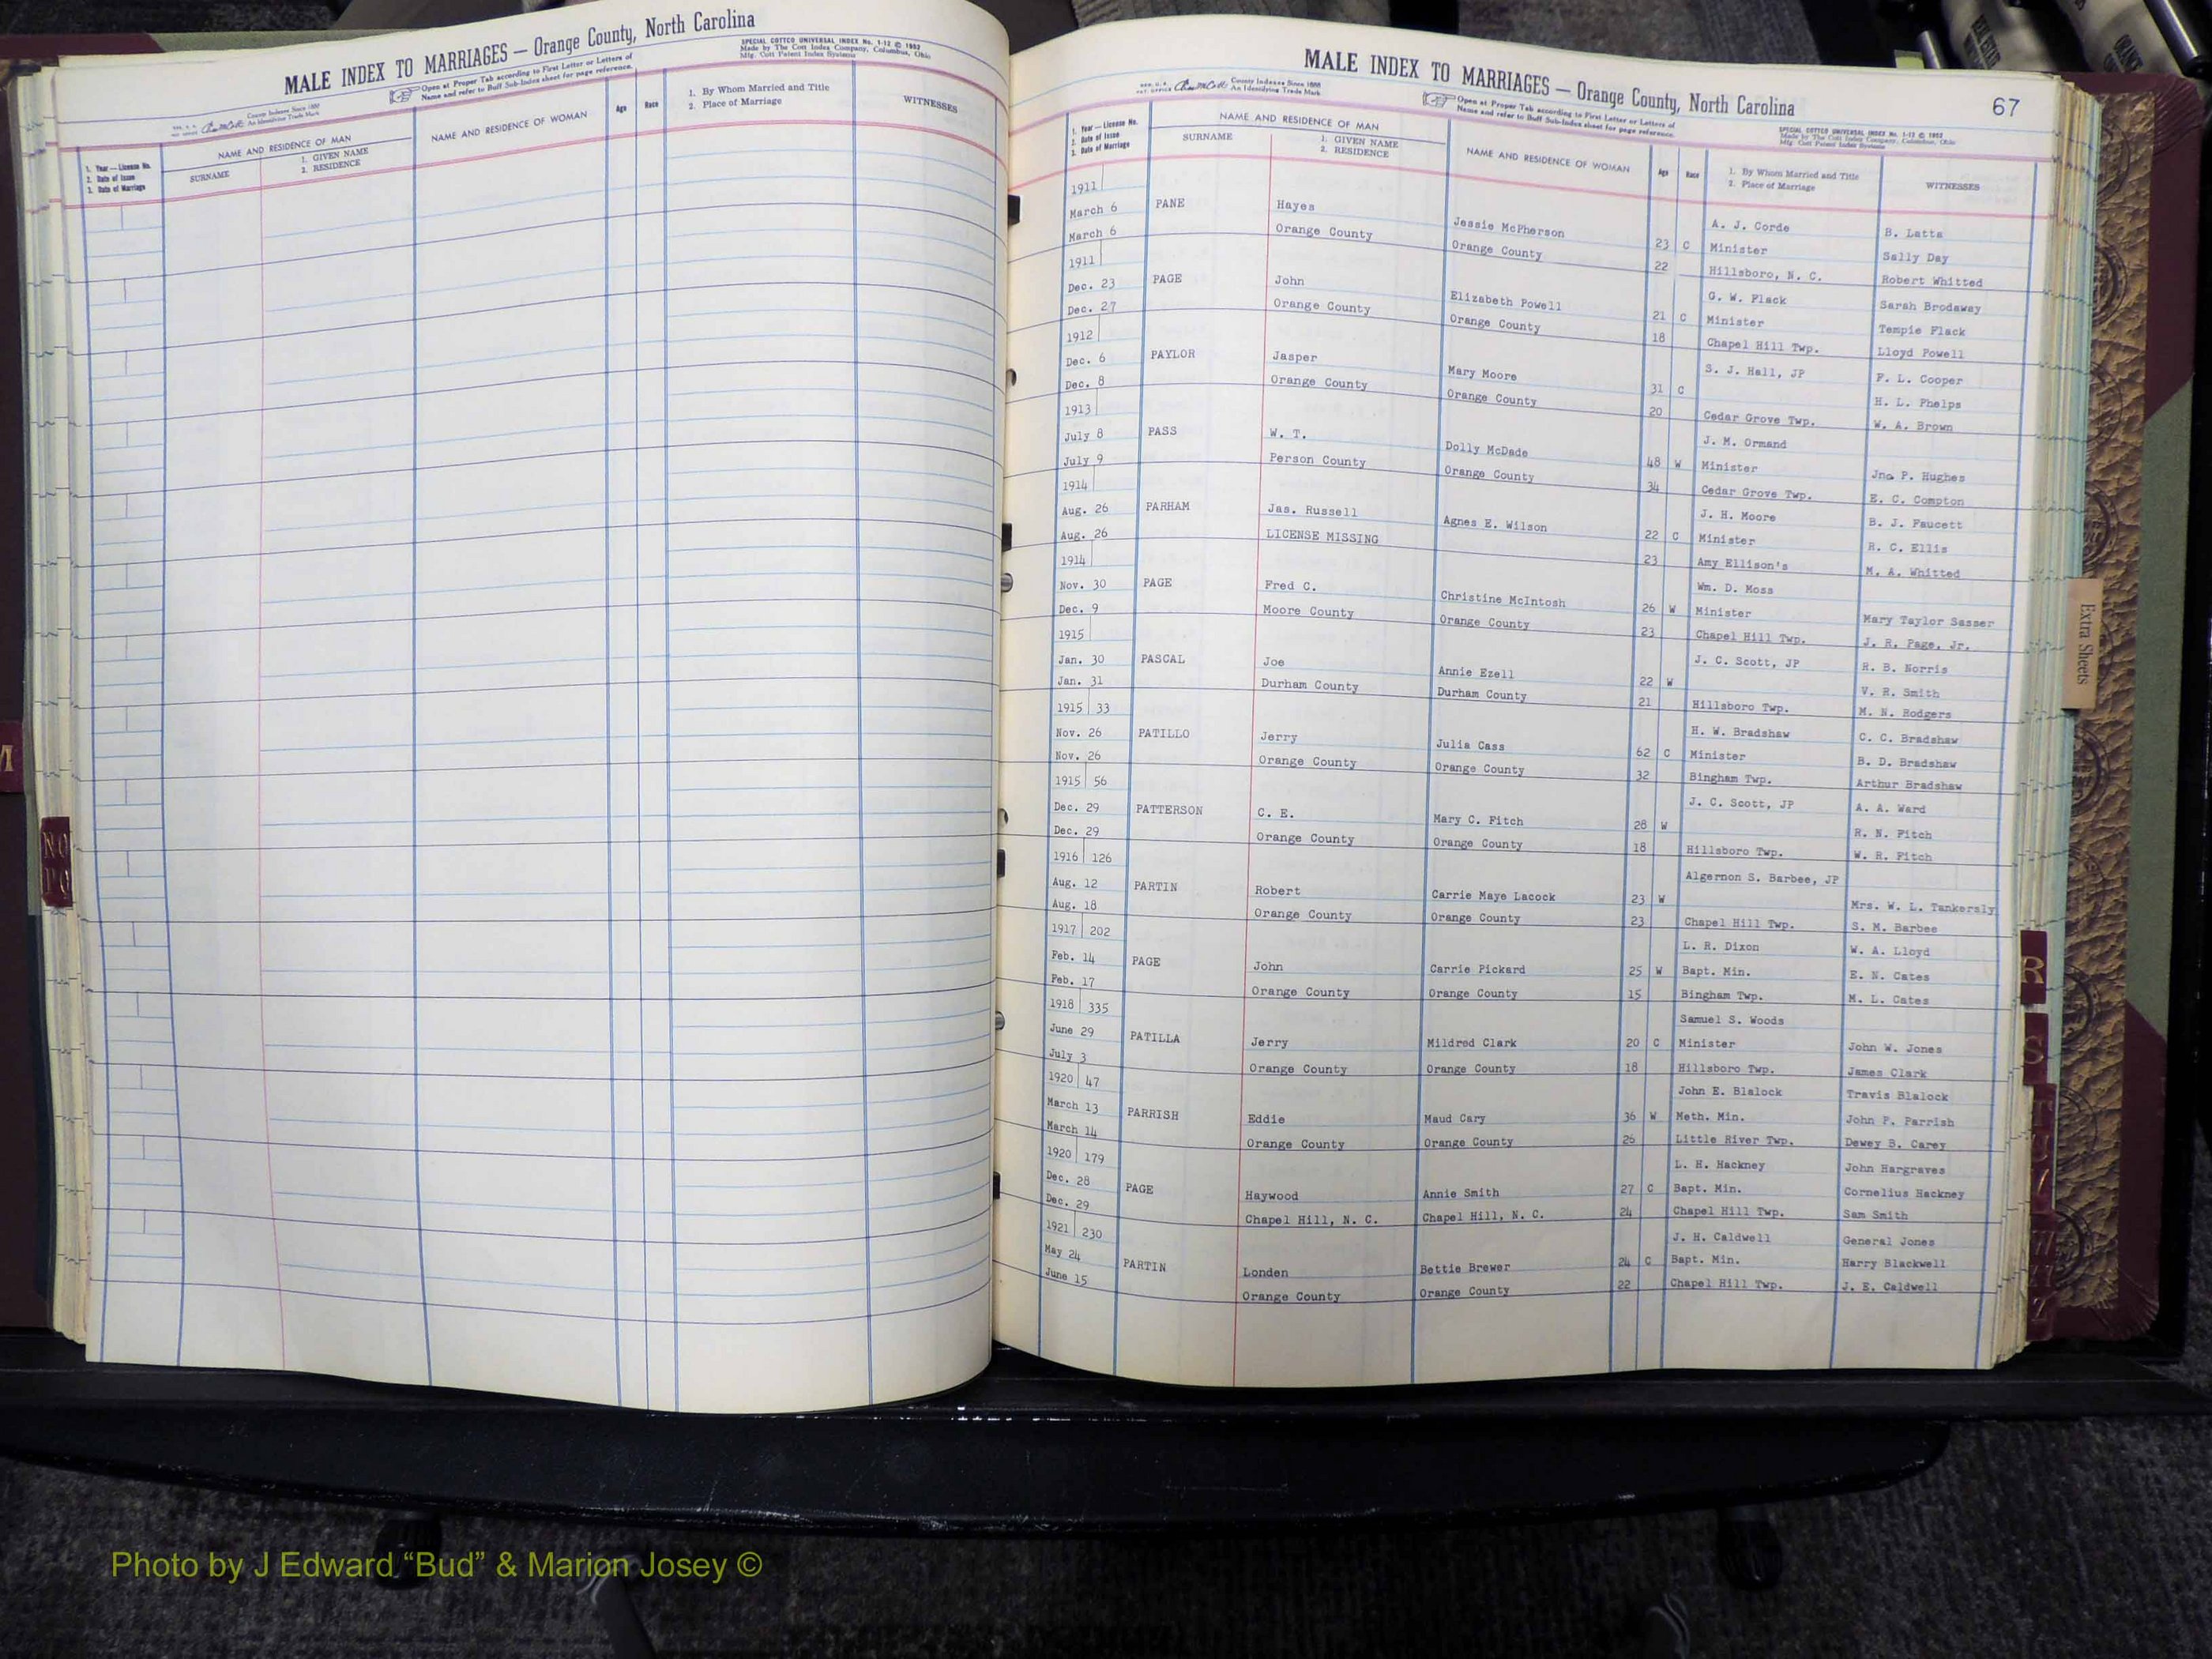 MALE INDEX TO MARRIAGES — Orange County, North Carolina
SPECIAL COTTCO UNIVERSAL INDEX No. 1-12 © 1952
Made by The Cott Index Company, Columbus, Ohio
Mfg. Cott Patent Index Systems
Open at Proper Tab according to First Letter or Letters of
Name and refer to Buff Sub-Index sheet for page reference.
County Indexes Since 1888
An Identifying Trade Mark
1. Year — License No.
2. Date of Issue
3. Date of Marriage
NAME AND RESIDENCE OF MAN
SURNAME
1. GIVEN NAME
2. RESIDENCE
NAME AND RESIDENCE OF WOMAN
Age
Race
1. By Whom Married and Title
2. Place of Marriage
WITNESSES
MALE INDEX TO MARRIAGES — Orange County, North Carolina
67
County Indexes Since 1888
An Identifying Trade Mark
Open at Proper Tab according to First Letter or Letters of
Name and refer to Buff Sub-Index sheet for page reference.
SPECIAL COTTCO UNIVERSAL INDEX No. 1-12 © 1952
Made by The Cott Index Company, Columbus, Ohio
Mfg. Cott Patent Index Systems
1. Year — License No.
2. Date of Issue
3. Date of Marriage
NAME AND RESIDENCE OF MAN
SURNAME
1. GIVEN NAME
2. RESIDENCE
NAME AND RESIDENCE OF WOMAN
Age
Race
1. By Whom Married and Title
2. Place of Marriage
WITNESSES
1911 A. J. Corde B. Latta
March 6 PANE Hayes Jessie McPherson 23 C Minister Sally Day
March 6 Orange County Orange County 22 Hillsboro, N. C. Robert Whitted
1911 G. W. Flack Sarah Brodaway
Dec. 23 PAGE John Elizabeth Powell 21 C Minister Tempie Flack
Dec. 27 Orange County Orange County 18 Chapel Hill Twp. Lloyd Powell
1912 S. J. Hall, JP F. L. Cooper
Dec. 6 PAYLOR Jasper Mary Moore 31 C H. L. Phelps
Dec. 8 Orange County Orange County 20 Cedar Grove Twp. W. A. Brown
1913 J. M. Ormand
July 8 PASS W. T. Dolly McDade 48 W Minister Jno. P. Hughes
July 9 Person County Orange County 34 Cedar Grove Twp. E. C. Compton
1914 J. H. Moore B. J. Faucett
Aug. 26 PARHAM Jas. Russell Agnes E. Wilson 22 C Minister R. C. Ellis
Aug. 26 LICENSE MISSING 23 Amy Ellison's M. A. Whitted
1914 Wm. D. Moss
Nov. 30 PAGE Fred C. Christine McIntosh 26 W Minister Mary Taylor Sasser
Dec. 9 Moore County Orange County 23 Chapel Hill Twp. J. R. Page, Jr.
1915 J. C. Scott, JP R. B. Norris
Jan. 30 PASCAL Joe Annie Ezell 22 W V. R. Smith
Jan. 31 Durham County Durham County 21 Hillsboro Twp. M. N. Rodgers
1915 33 H. W. Bradshaw C. C. Bradshaw
Nov. 26 PATILLO Jerry Julia Cass 62 C Minister B. D. Bradshaw
Nov. 26 Orange County Orange County 32 Bingham Twp. Arthur Bradshaw
1915 56 J. C. Scott, JP A. A. Ward
Dec. 29 PATTERSON C. E. Mary C. Fitch 28 W R. N. Fitch
Dec. 29 Orange County Orange County 18 Hillsboro Twp. W. R. Fitch
1916 126 Algernon S. Barbee, JP
Aug. 12 PARTIN Robert Carrie Maye Lacock 23 W Mrs. W. L. Tankersly
Aug. 18 Orange County Orange County 23 Chapel Hill Twp. S. M. Barbee
1917 202 L. R. Dixon W. A. Lloyd
Feb. 14 PAGE John Carrie Pickard 25 W Bapt. Min. E. N. Cates
Feb. 17 Orange County Orange County 15 Bingham Twp. M. L. Cates
1918 335 Samuel S. Woods
June 29 PATILLA Jerry Mildred Clark 20 C Minister John W. Jones
July 3 Orange County Orange County 18 Hillsboro Twp. James Clark
1920 47 John E. Blalock Travis Blalock
March 13 PARRISH Eddie Maud Cary 36 W Meth. Min. John P. Parrish
March 14 Orange County Orange County 26 Little River Twp. Dewey B. Carey
1920 179 L. H. Hackney John Hargraves
Dec. 28 PAGE Haywood Annie Smith 27 C Bapt. Min. Cornelius Hackney
Dec. 29 Chapel Hill, N. C. Chapel Hill, N. C. 24 Chapel Hill Twp. Sam Smith
1921 230 J. H. Caldwell General Jones
May 24 PARTIN Londen Bettie Brewer 24 C Bapt. Min. Harry Blackwell
June 15 Orange County Orange County 22 Chapel Hill Twp. J. E. Caldwell
Extra Sheets
M
NO
PQ
R
S
T
Photo by J Edward “Bud” & Marion Josey ©